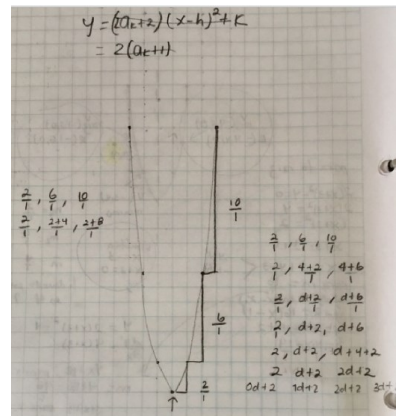 y = (2a+2)(x-h)²+K
= 2(a+1)
2/1, 6/1, 10/1
2/1, 2+4/1, 2+8/1
10/1
6/1
2/1
2/1, 6/1, 10/1
2/1, 4+2/1, 4+6/1
2/1, d+2/1, d+6/1
2/1, d+2, d+6
2, d+2, d+4+2
2 d+2 2d+2
0d+2 1d+2 2d+2 3d+